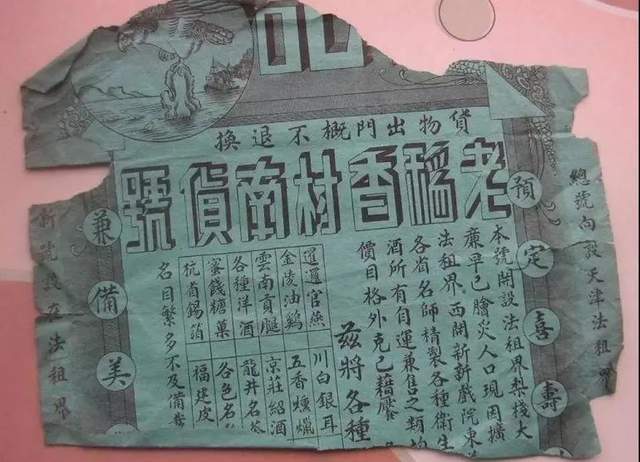 貨物出門概不退換
老稻香村南貨號
總號向設天津法租界
預定喜壽
本號開設法租界梨棧大
廉早已膾炙人口現因擴
法租界西開新新戲院東
各省名師精製各種衛生
酒所有自運兼售之類均
價目格外克己藉酬
茲將各種
暹邏官燕 川白銀耳
金陵油鷄 五香燻臘
雲南貢腿 京莊紹酒
各種洋酒 龍井名茶
蜜餞糖菓 各色名
杭省錫箔 福建皮
名目繁多不及備
兼備美
新號設在法租界